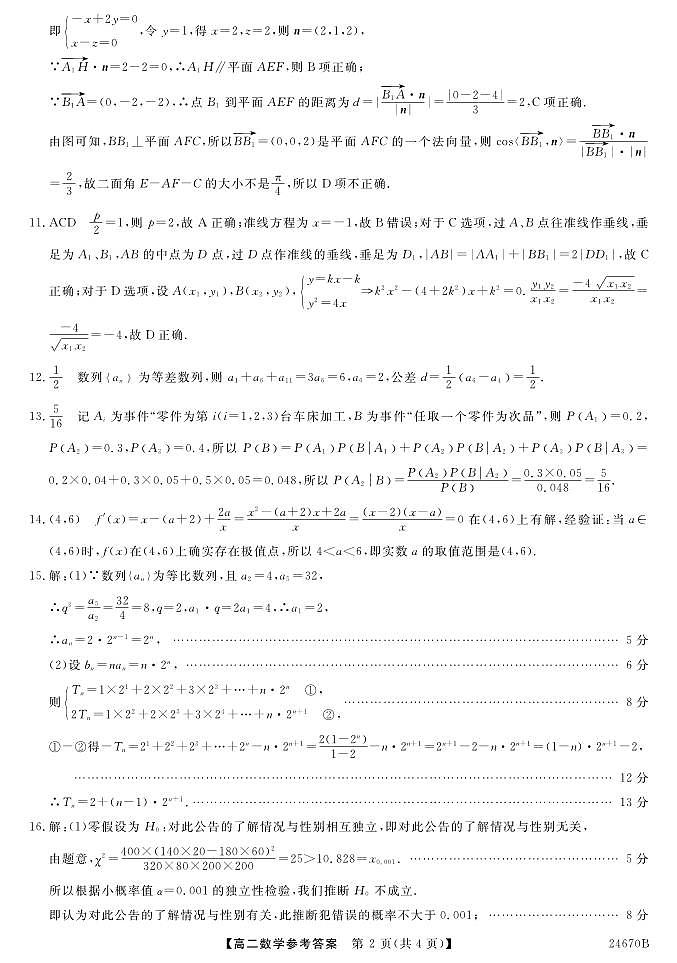 即{−x+2y=0 x−z=0,令 y=1,得 x=2,z=2,则 n=(2,1,2),
∵A₁H·n=2−2=0,∴A₁H∥平面 AEF,则 B 项正确;
∵B₁A=(0,−2,−2),∴点 B₁ 到平面 AEF 的距离为 d=|B₁A·n/|n||=|0−2−4|/3=2,C 项正确.
由图可知,BB₁⊥平面 AFC,所以BB₁=(0,0,2)是平面 AFC 的一个法向量,则 cos⟨BB₁,n⟩=BB₁·n/(|BB₁|·|n|)
=2/3,故二面角 E−AF−C 的大小不是π/4,所以 D 项不正确.
11.ACD p/2=1,则 p=2,故 A 正确;准线方程为 x=−1,故 B 错误;对于 C 选项,过 A、B 点往准线作垂线,垂
足为 A₁、B₁,AB 的中点为 D 点,过 D 点作准线的垂线,垂足为 D₁,|AB|=|AA₁|+|BB₁|=2|DD₁|,故 C
正确;对于 D 选项,设 A(x₁,y₁),B(x₂,y₂),{y=kx−k y²=4x⇒k²x²−(4+2k²)x+k²=0. y₁y₂/x₁x₂=−4√(x₁x₂)/x₁x₂=
−4/√(x₁x₂)=−4,故 D 正确.
12.1/2 数列{aₙ}为等差数列,则 a₁+a₆+a₁₁=3a₆=6,a₆=2,公差 d=1/2(a₆−a₄)=1/2.
13.5/16 记 Aᵢ 为事件“零件为第 i(i=1,2,3)台车床加工,B 为事件“任取一个零件为次品”,则 P(A₁)=0.2,
P(A₂)=0.3,P(A₃)=0.4,所以 P(B)=P(A₁)P(B|A₁)+P(A₂)P(B|A₂)+P(A₃)P(B|A₃)=
0.2×0.04+0.3×0.05+0.5×0.05=0.048,所以 P(A₂|B)=P(A₂)P(B|A₂)/P(B)=0.3×0.05/0.048=5/16.
14.(4,6) f′(x)=x−(a+2)+2a/x=(x²−(a+2)x+2a)/x=(x−2)(x−a)/x=0 在(4,6)上有解,经验证:当 a∈
(4,6)时,f(x)在(4,6)上确实存在极值点,所以 4<a<6,即实数 a 的取值范围是(4,6).
15.解:(1)∵数列{aₙ}为等比数列,且 a₂=4,a₅=32,
∴q³=a₅/a₂=32/4=8,q=2,a₁·q=2a₁=4,∴a₁=2,
∴aₙ=2·2ⁿ⁻¹=2ⁿ, …… 5 分
(2)设 bₙ=naₙ=n·2ⁿ, …… 6 分
则{Tₙ=1×2¹+2×2²+3×2³+⋯+n·2ⁿ ①, 2Tₙ=1×2²+2×2³+3×2⁴+⋯+n·2ⁿ⁺¹ ②, …… 8 分
①−②得−Tₙ=2¹+2²+2³+⋯+2ⁿ−n·2ⁿ⁺¹=2(1−2ⁿ)/(1−2)−n·2ⁿ⁺¹=2ⁿ⁺¹−2−n·2ⁿ⁺¹=(1−n)·2ⁿ⁺¹−2,
…… 12 分
∴Tₙ=2+(n−1)·2ⁿ⁺¹. …… 13 分
16.解:(1)零假设为 H₀:对此公告的了解情况与性别相互独立,即对此公告的了解情况与性别无关,
由题意,χ²=400×(140×20−180×60)²/(320×80×200×200)=25>10.828=x₀.₀₀₁. …… 5 分
所以根据小概率值 α=0.001 的独立性检验,我们推断 H₀ 不成立.
即认为对此公告的了解情况与性别有关,此推断犯错误的概率不大于 0.001; …… 8 分
【高二数学参考答案 第 2 页(共 4 页)】 24670B